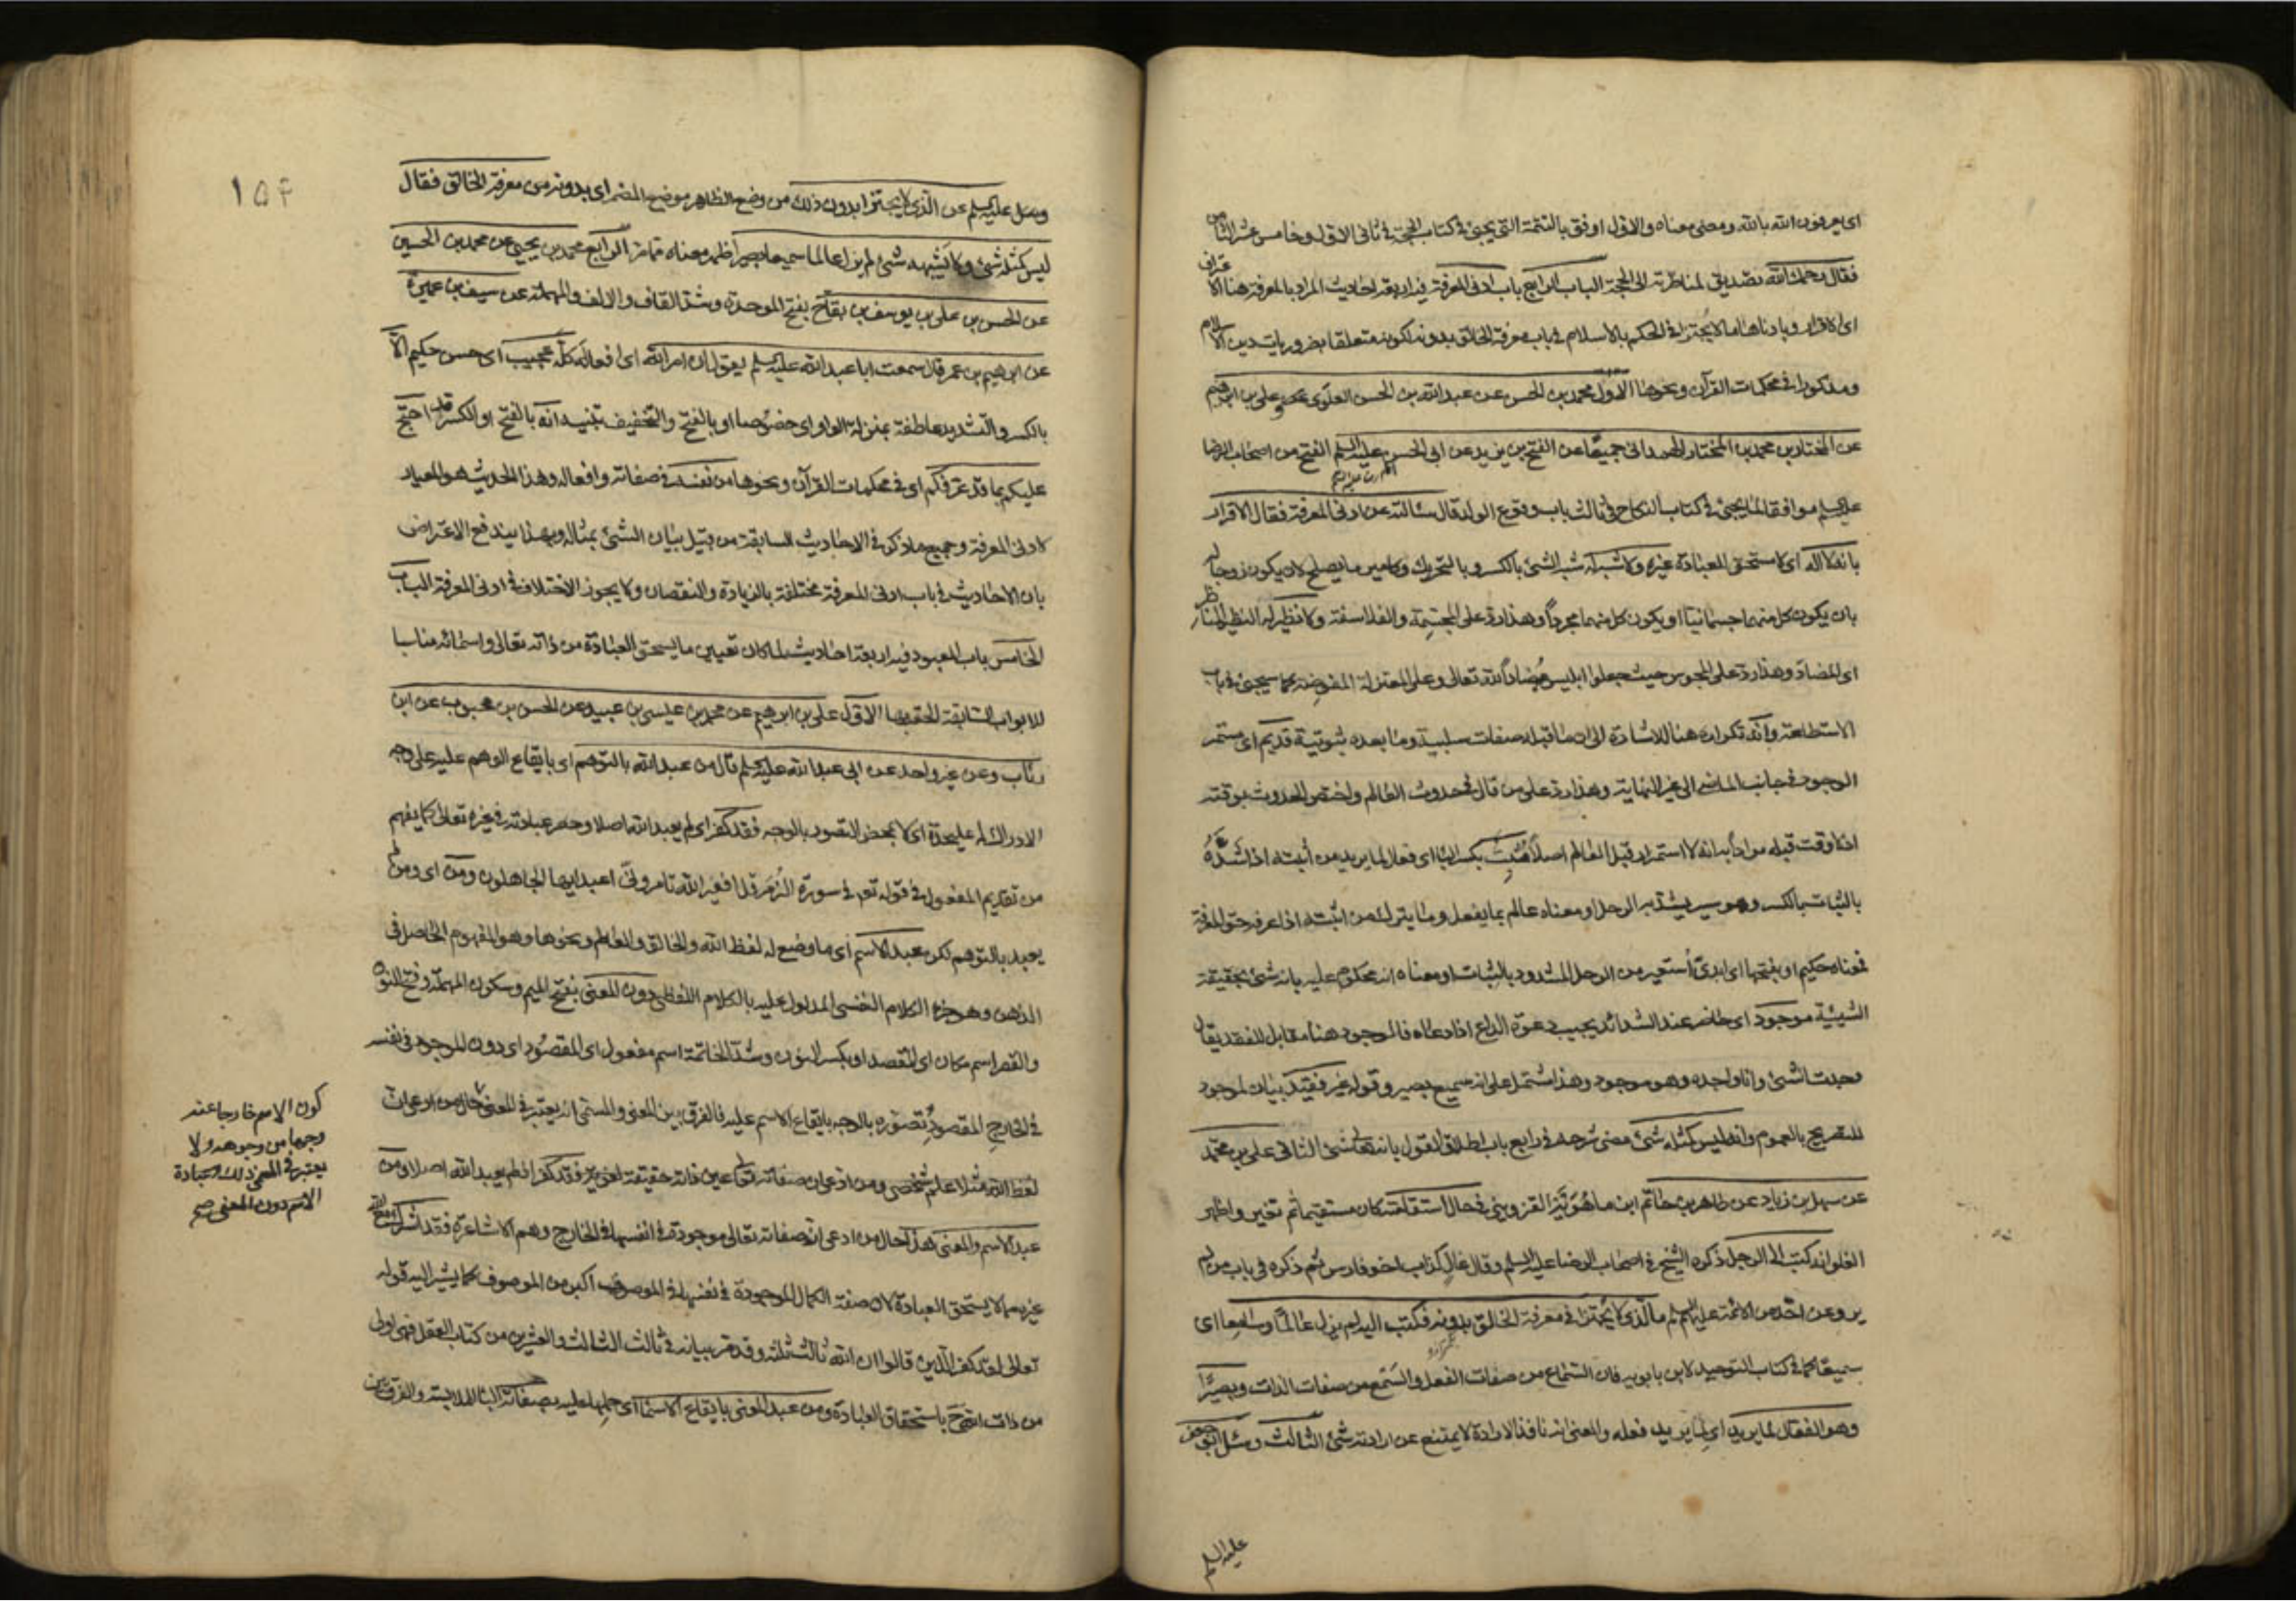 اى يعرفون الله بالله ومضى معناه والاول اوفق بالتتمة التى يجئ فى كتاب الحجة فى ثانى الاول وخامس عشر الثامن
فقال رحمك الله تصديق لمناظرته الى الحجة الباب الرابع باب ادنى المعرفة فيه اربعة احاديث المراد بالمعرفة هنا الاعتراف
اى الاقرار وبادناها ما لا يجتزا فى الحكم بالاسلام فى باب معرفة الخالق بدونه لكونه متعلقا بضروريات دين الاسلام
ومذكورا فى محكمات القرآن ونحوها الاول محمد بن الحسن عن عبد الله بن الحسن العلوى وعلى بن ابرهيم
عن المختار بن محمد بن المختار الهمدانى جميعا عن الفتح بن يزيد عن ابى الحسن عليه السلم الفتح من اصحاب الرضا
عليه السلم موافقا لما يجئ فى كتاب النكاح فى ثالث باب وقوع الولد قال سئالته عن ادنى المعرفة فقال الاقرار
بانه لا اله اى لا مستحق للعبادة غيره ولا شبه له شبه الشئ بالكسر وبالتحريك وكامير ما يصلح لان يكون زوجا له
بان يكون كل منهما جسمانيا او يكون كل منهما مجردا وهذا رد على المجسمة والفلاسفة ولا نظير له النظير المناظر
اى المضاد وهذا رد على المجوس حيث جعلوا ابليس مضادا لله تعالى وعلى المعتزلة المفوضة كما سيجئ فى باب
الاستطاعة وانه تكرار انه هنا للاشارة الى ان ما قبله صفات سلبية وما بعده ثبوتية قديم اى مستمر
الوجود فى جانب الماضى الى غير النهاية وهذا رد على من قال فى حدوث العالم واختص الحدوث بوقته
اذ لا وقت قبله مرادا به انه لا استمرار قبل العالم اصلا مثبت بكسر الباء اى فعال لما يريد من أثبته اذا شده
بالثبات بالكسر وهو سير يشد به الرحل او معناه عالم بما يفعل وما يترك من اثبته اذا عرفه حق المعرفة
فمعناه حكيم او بفتحها اى ابدى أستعير من الرحل المشدود بالثبات او معناه انه محكوم عليه بانه شئ بحقيقة
الشيئية موجود اى حاضر عند الشدائد يجيب دعوة الداع اذا دعاه فالموجود هنا مقابل للفقيد يقال
وجدت الشئ وانا واجده وهو موجود وهذا اشتمل على انه سميع بصير وقوله غير فقيد بيان لموجود
للتصريح بالعموم وانه ليس كمثله شئ مضى شرحه فى رابع باب اطلاق القول بانه تعالى شئ الثانى على بن محمد
عن سهل بن زياد عن طاهر بن حاتم ابن ماهويه القزوينى فى حال استقامته كان مستقيما ثم تغير واظهر
الغلو انه كتب الى الرجل ذكره الشيخ فى اصحاب الرضا عليه السلم وقال غال كذاب اخو فارس ثم ذكره فى باب من لم
يرو عن احد من الائمة عليهم السلم ما الذى لا يجتزا فى معرفة الخالق بدونه فكتب اليه لم يزل عالما وسامعا اى
سميعا كما فى كتاب التوحيد لابن بابويه فان السماع من صفات الفعل والسمع من صفات الذات وبصيرا
وهو الفعال لما يريد اى لما يريد فعله والمعنى انه نافذ الارادة لا يمتنع عن ارادته شئ الثالث وسئل ابو جعفر
عليه السلم
١٥٤
وسئل عليه السلم عن الذى لا يجتزا بدون ذلك من وضع الظاهر موضع المضمر اى بدونه من معرفة الخالق فقال
ليس كمثله شئ ولا يشبهه شئ لم يزل عالما سميعا بصيرا ظهر معناه مما مر الرابع محمد بن يحيى عن محمد بن الحسين
عن الحسن بن على بن يوسف بن بقاح بفتح الموحدة وشد القاف والالف والمهملة عن سيف بن عميرة
عن ابرهيم بن عمر قال سمعت ابا عبد الله عليه السلم يقول ان امر الله اى افعاله كله عجيب اى حسن حكيم الا
بالكسر والتشديد عاطفة بمنزلة الواو اى خصوصا او بالفتح والتخفيف تنبيه انه بالفتح او الكسر قد احتج
عليكم بما قد عرفكم اى فى محكمات القرآن ونحوها من نفسه فى صفاته وافعاله وهذا الحديث هو المعيار
لادنى المعرفة وجميع ما ذكر فى الاحاديث السابقة من قبيل بيان الشئ بمثاله وبهذا يندفع الاعتراض
بان الاحاديث فى باب ادنى المعرفة مختلفة بالزيادة والنقصان ولا يجوز الاختلاف فى ادنى المعرفة الباب
الخامس باب المعبود فيه اربعة احاديث لما كان تعيين ما يستحق العبادة من ذاته تعالى واسمائه مناسبا
للابواب السابقة الحقه بها الاول على بن ابرهيم عن محمد بن عيسى بن عبيد عن الحسن بن محبوب عن ابن
رئاب وعن غير واحد عن ابى عبد الله عليه السلم قال من عبد الله بالتوهم اى بايقاع الوهم عليه على وجه
الادراك له عليحدة اى لا بمحض التصور بالوجه فقد كفر اى لم يعبد الله اصلا وحصر عبادته فى غيره تعالى كما يفهم
من تقديم المفعول فى قوله تعالى فى سورة الزمر قل افغير الله تامرونى اعبد ايها الجاهلون ومن اى ومن لم
يعبد بالتوهم لكن عبد الاسم أى ما وضع له لفظ الله والخالق والعالم ونحوها وهو المفهوم الحاصل فى
الذهن وهو جزء الكلام النفسى المدلول عليه بالكلام اللفظى دون المعنى بفتح الميم وسكون المهملة وفتح النون
والقصر اسم مكان اى المقصد او بكسر النون وشد الخاتمة اسم مفعول اى المقصود اى دون الموجود فى نفسه
فى الخارج المقصود تصوره بالوجه بايقاع الاسم عليه فالفرق بين المعنى والمسمى انه يعتبر فى المعنى حال من ادعى ان
لفظ الله مثلا علم شخصى ومن ادعى ان صفاته تعالى عين ذاته حقيقة لغوية فقد كفر اذ لم يعبد الله اصلا ومن
عبد الاسم والمعنى هذا حال من ادعى ان صفاته تعالى موجودة فى انفسها فى الخارج وهم الاشاعرة فقد اشرك مع الله
غيره مما لا يستحق العبادة لان صفة الكمال الموجودة فى نفسها فى الموصوف اكبر من الموصوف كما يشير اليه قوله
تعالى لقد كفر الذين قالوا ان الله ثالث ثلثة وقد مر بيانه فى ثالث الثالث والعشرين من كتاب العقل فهى اولى
من ذات باستحقاق العبادة ومن عبد المعنى بايقاع الاسماء اى حملها عليه بصفاته الباء للملابسة والفرق بين
كون الاسم خارجا عنه
وجها من وجوهه ولا
يعتبر فى المعنى ذلك وعبادة
الاسم دون المعنى صح